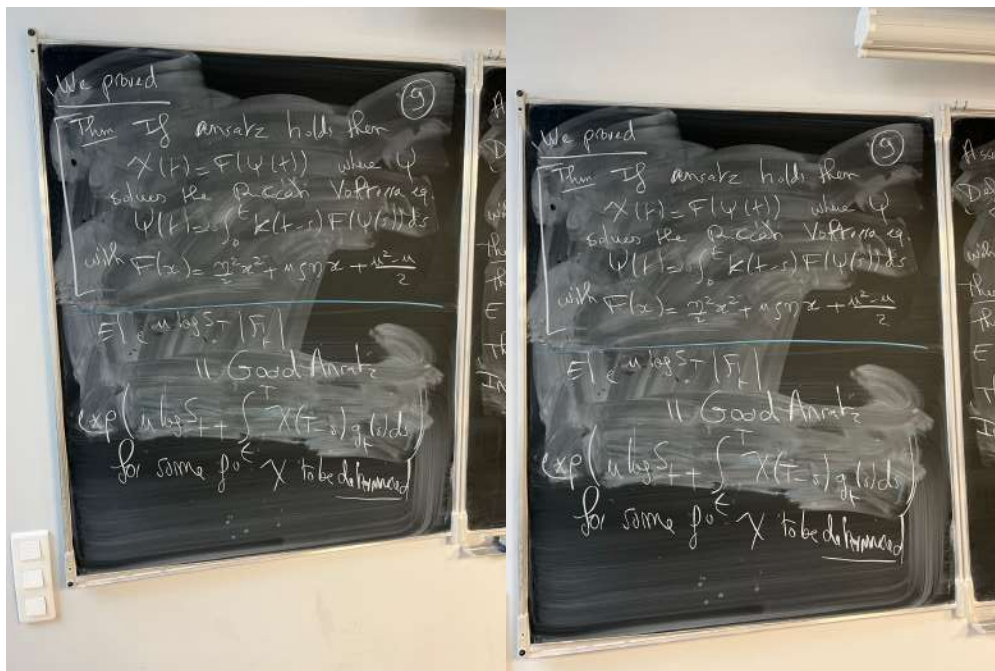 We proved
9
Thm If ansatz holds then
χ(t) = F(ψ(t)) where ψ
solves the Riccati Volterra eq.
ψ(t) = ∫₀ᵗ K(t-s) F(ψ(s)) ds
with F(x) = η²/2 x² + uρηx + (u²-u)/2
E[e^{u log S_T} | F_t]
|| Good Ansatz
exp(u log S_t + ∫_t^T χ(T-s) g_t(s) ds)
for some f° χ to be determined
We proved
9
Thm If ansatz holds then
χ(t) = F(ψ(t)) where ψ
solves the Riccati Volterra eq.
ψ(t) = ∫₀ᵗ K(t-s) F(ψ(s)) ds
with F(x) = η²/2 x² + uρηx + (u²-u)/2
E[e^{u log S_T} | F_t]
|| Good Ansatz
exp(u log S_t + ∫_t^T χ(T-s) g_t(s) ds)
for some f° χ to be determined